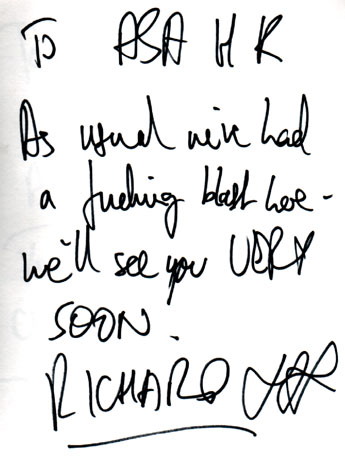 To ASA H K
As usual we've had
a fucking blast here -
we'll see you VERY
SOON.
RICHARD